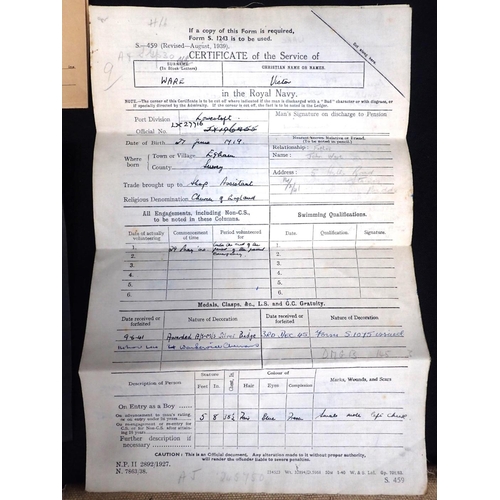 If a copy of this Form is required,
Form S. 1243 is to be used.
S.—459 (Revised—August, 1939).
CERTIFICATE of the Service of
SURNAME
(In Block Letters)
CHRISTIAN NAME OR NAMES.
WARE
Victor
in the Royal Navy.
NOTE.—The corner of this Certificate is to be cut off where indicated if the man is discharged with a "Bad" character or with disgrace, or
if specially directed by the Admiralty. If the corner is cut off, the fact is to be noted in the Ledger.
Port Division
Lowestoft
Official No.
LX 27716
Man's Signature on discharge to Pension.
Date of Birth
21 June 1919
Where born
Town or Village
Egham
County
Surrey
Trade brought up to
Shop Assistant
Religious Denomination
Church of England
Relationship:
Name:
Address:
All Engagements, including Non-C.S.,
to be noted in these Columns.
Swimming Qualifications.
Date of actually
volunteering
Commencement
of time
Period volunteered
for
Date.
Qualification.
Signature.
1.
2.
3.
4.
5.
6.
1.
2.
3.
4.
5.
6.
Medals, Clasps, &c., L.S. and G.C. Gratuity.
Date received or
forfeited
Nature of Decoration
Date received or
forfeited
Nature of Decoration
9-6-41
Awarded
Silver Badge
3RD DEC 45
Form S 1075 issued
Description of Person
Stature
Feet
In.
Colour of
Hair
Eyes
Complexion
Marks, Wounds, and Scars
On Entry as a Boy
On advancement to man's rating,
or on entry under 25 years
On engagement or re-entry
for C.S. or for Non-C.S. after
attaining 25 years
Further description if
necessary
5
8
Blue
Fresh
CAUTION.—This is an Official Document. Any alteration made to it without proper authority,
will render the offender liable to severe penalties.
N.P. II 2892/1927.
N. 7863/38.
S. 459